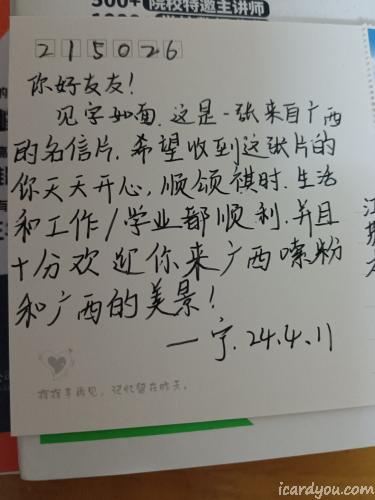 500+ 院校特邀主讲师
215026
你好友友!
见字如面.这是一张来自广西
的名信片.希望收到这张片的
你天天开心,顺颂祺时.生活
和工作/学业都顺利.并且
十分欢迎你来广西嗦粉
和广西的美景!
一宁.24.4.11
挥挥手再见,记忆留在昨天。
icardyou.com